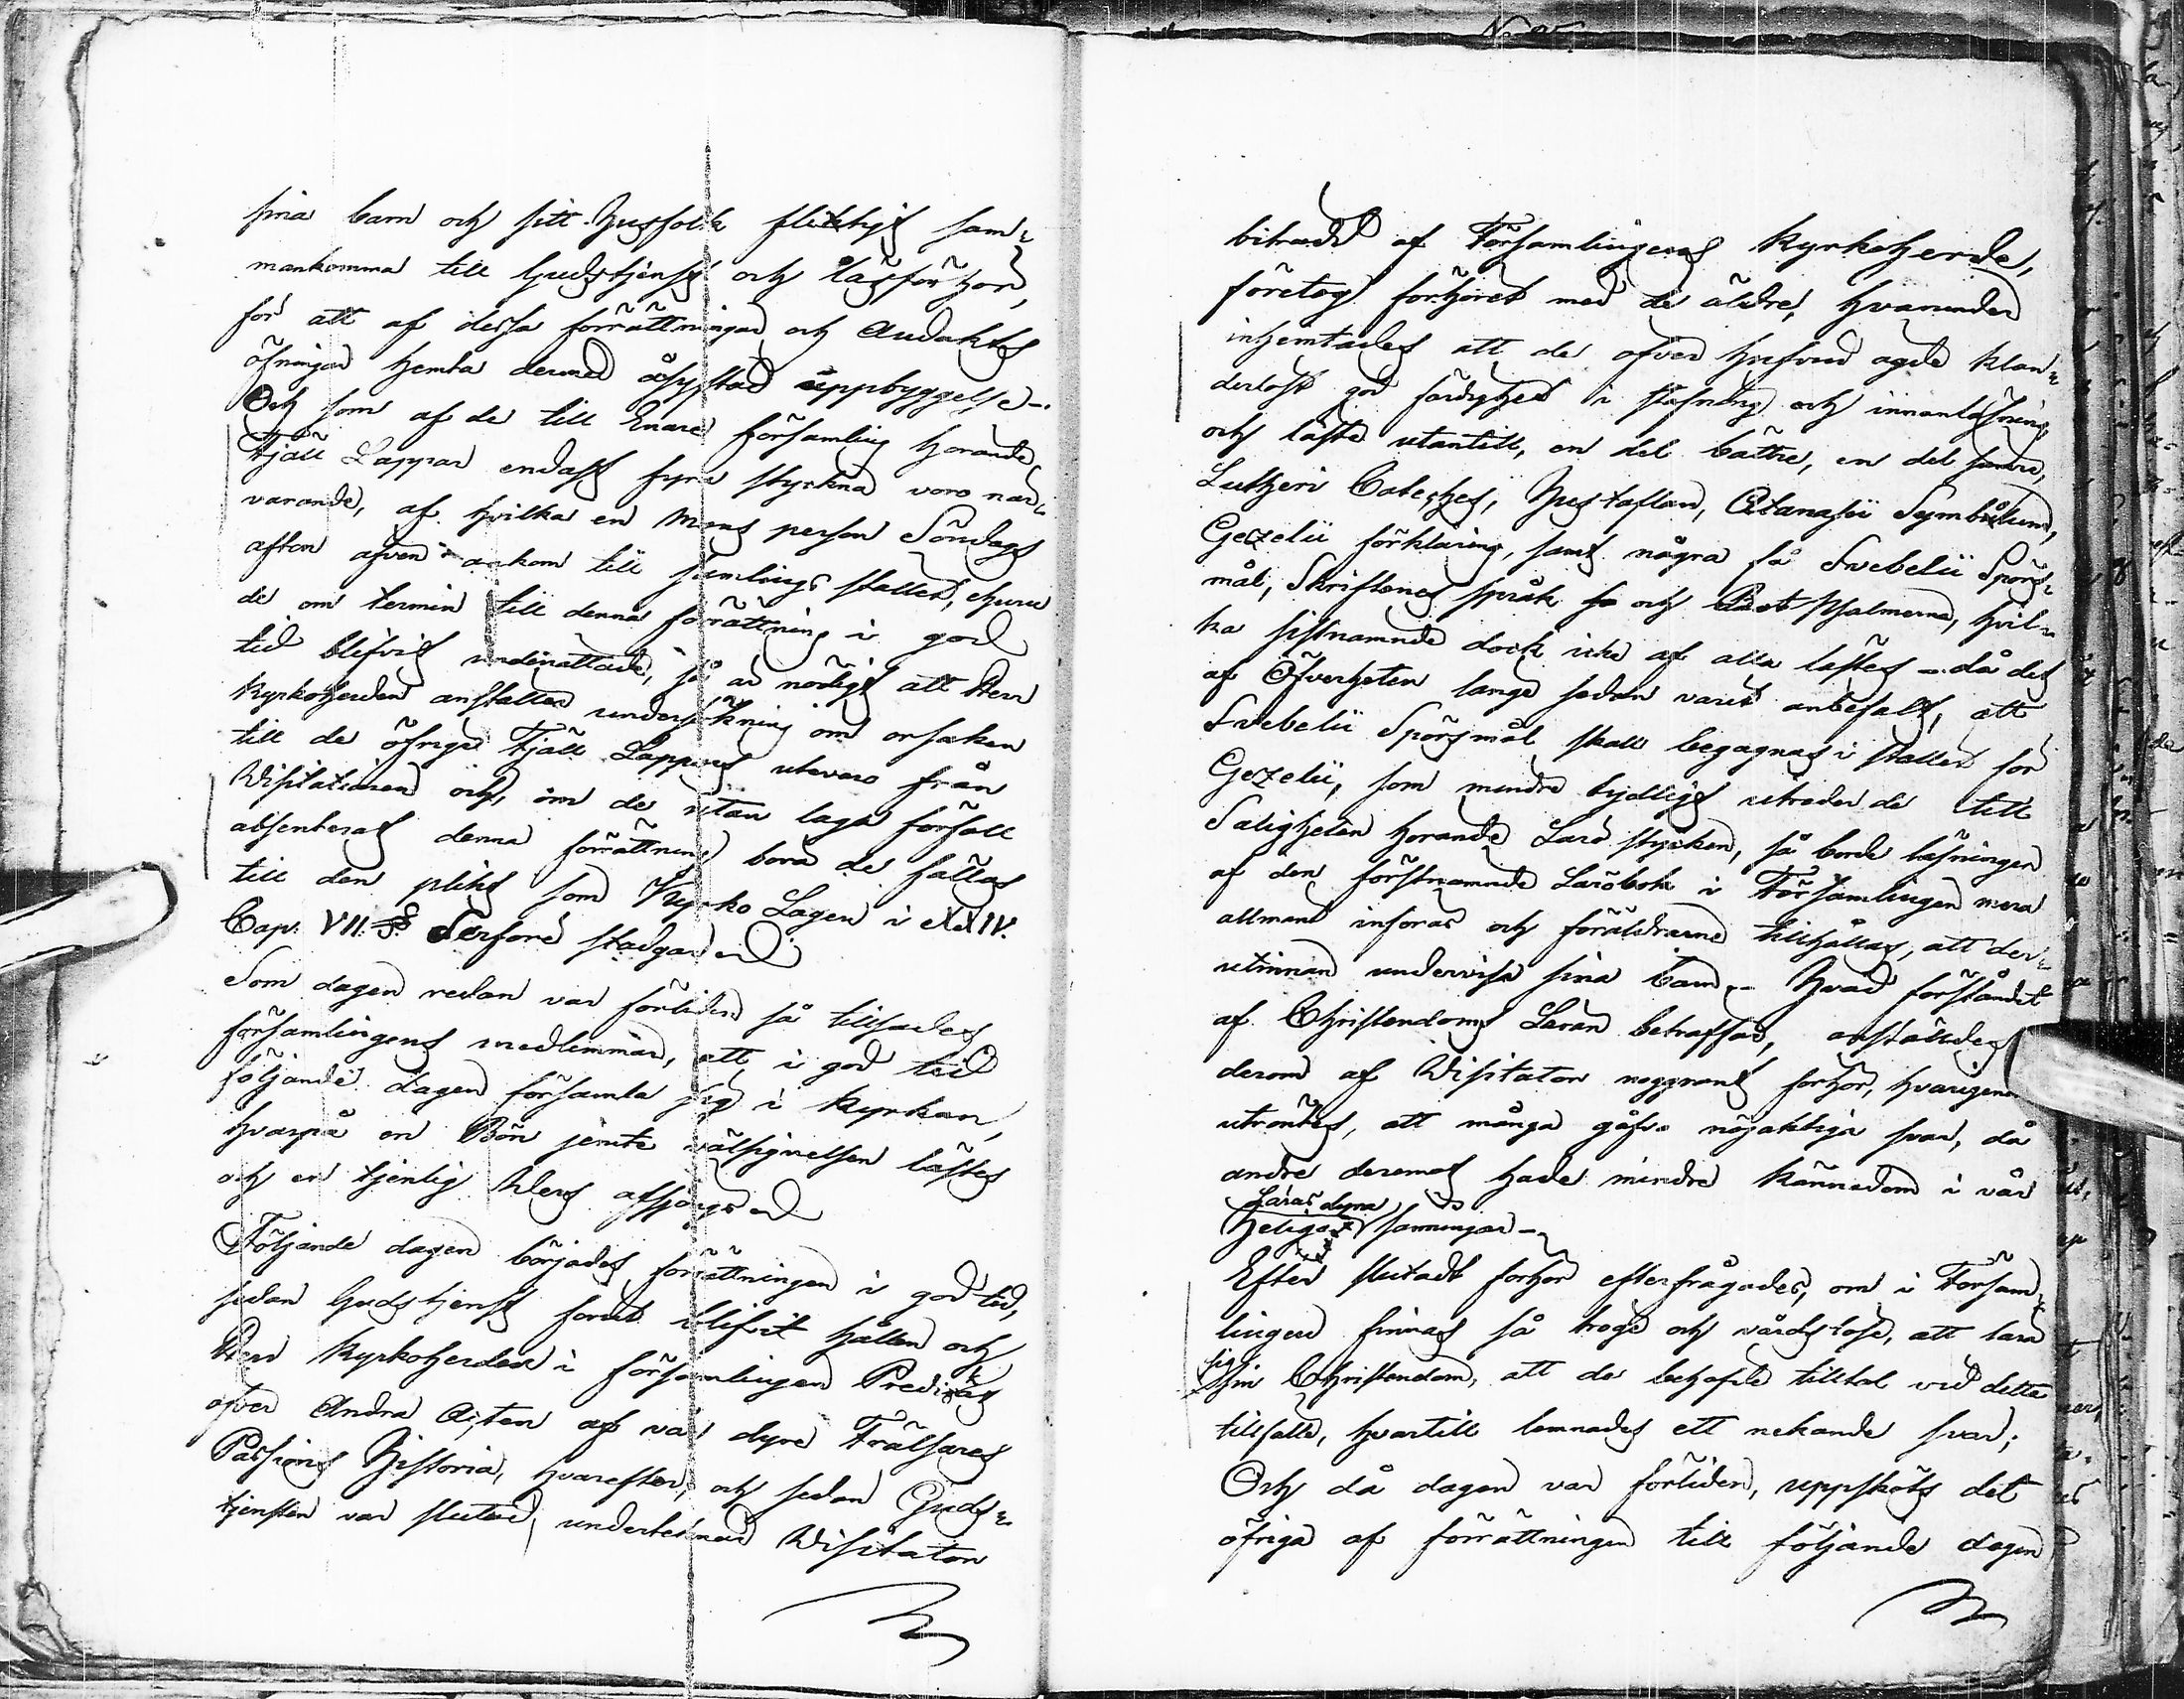 sina barn och sitt husfolk flitigt sam-
mankomma till Gudstjenst och läsförhör,
för att af dessa förrättningar och Andakts
öfningar hemta dermed åsyftad uppbyggelse-.
Och som af de till Enare Församling hörande
Fjäll Lappar endast fyra stycken voro när-
varande, af hvilka en Mans person Söndags
afton äfven ankom till samlings stället, ehuru
de om termin till denna förrättning i god
tid blifvit underrättade, så är nödigt att Herr
Kyrkoherden anställer undersökning om orsaken
till de öfriga Fjäll Lappars utevaro från
Visitationen och, om de utan laga förfall
absenterat denna förrättning böra de fällas
till den plikt som Kyrko Lagen i XXIV.
Cap. VII. § derföre stadgar
Som dagen redan var förliden så tillsades
församlingens medlemmar, att i god tid
följande dagen församla sig i Kyrkan,
hvarpå en Bön jemte välsignelsen lästes
och en tjenlig vers afsjöngs
Följande dagen börjades förrättningen i god tid,
sedan Gudstjenst förut blifvit hållen och
Herr Kyrkoherden i församlingen Predikat
öfver Andra Acten af vår dyre Frälsares
Passions Historia, hvarefter, och sedan Guds-
tjensten var slutad, undertecknad Visitator
biträdd af Församlingens Kyrkoherde,
företog förhöret med de äldre, hvarunder
inhemtades att de öfver hufvud ägde klan-
derlöst god färdighet i stafning och innanläsning
och läste utantill, en del bättre, en del sämre,
Lutheri Cateches, Hustaflan, Atanasii Symbolum,
Gezelii förklaring, samt några få Svebelii Spörs-
mål, Skriftenes språk och Bot Psalmerna, hvil-
ka sistnämnde dock icke af alla lästes - då det
af Öfverheten länge sedan varit anbefalt, att
Svebelii Spörsmål skall begagnas i stället för
Gezelii, som mindre tydligt utreder de till
Saligheten hörande Läro stycken, så borde läsningen
af den förstnämnde Lärobok i Församlingen mera
allmänt införas och föräldrarne tillhållas, att der-
utinnan undervisa sina barn.- Hvad förståndet
af Christendoms Läran beträffar, anställdes
derom af Visitator noggrant förhör, hvarigenom
utröntes, att många gåfvo nöjaktiga svar, då
andre deremot hade mindre kännedom i vår
Läras dyra
Heliga sanningar-
Efter slutadt förhör efterfrågades, om i Försam-
lingen finnas så tröge och vårdslöse, att lära
sig
sin Christendom, att de behöfde tilltal vid detta
tillfälle, hvartill lemnades ett nekande svar;
Och då dagen var förliden, uppsköts det
öfriga af förrättningen till följande dagen